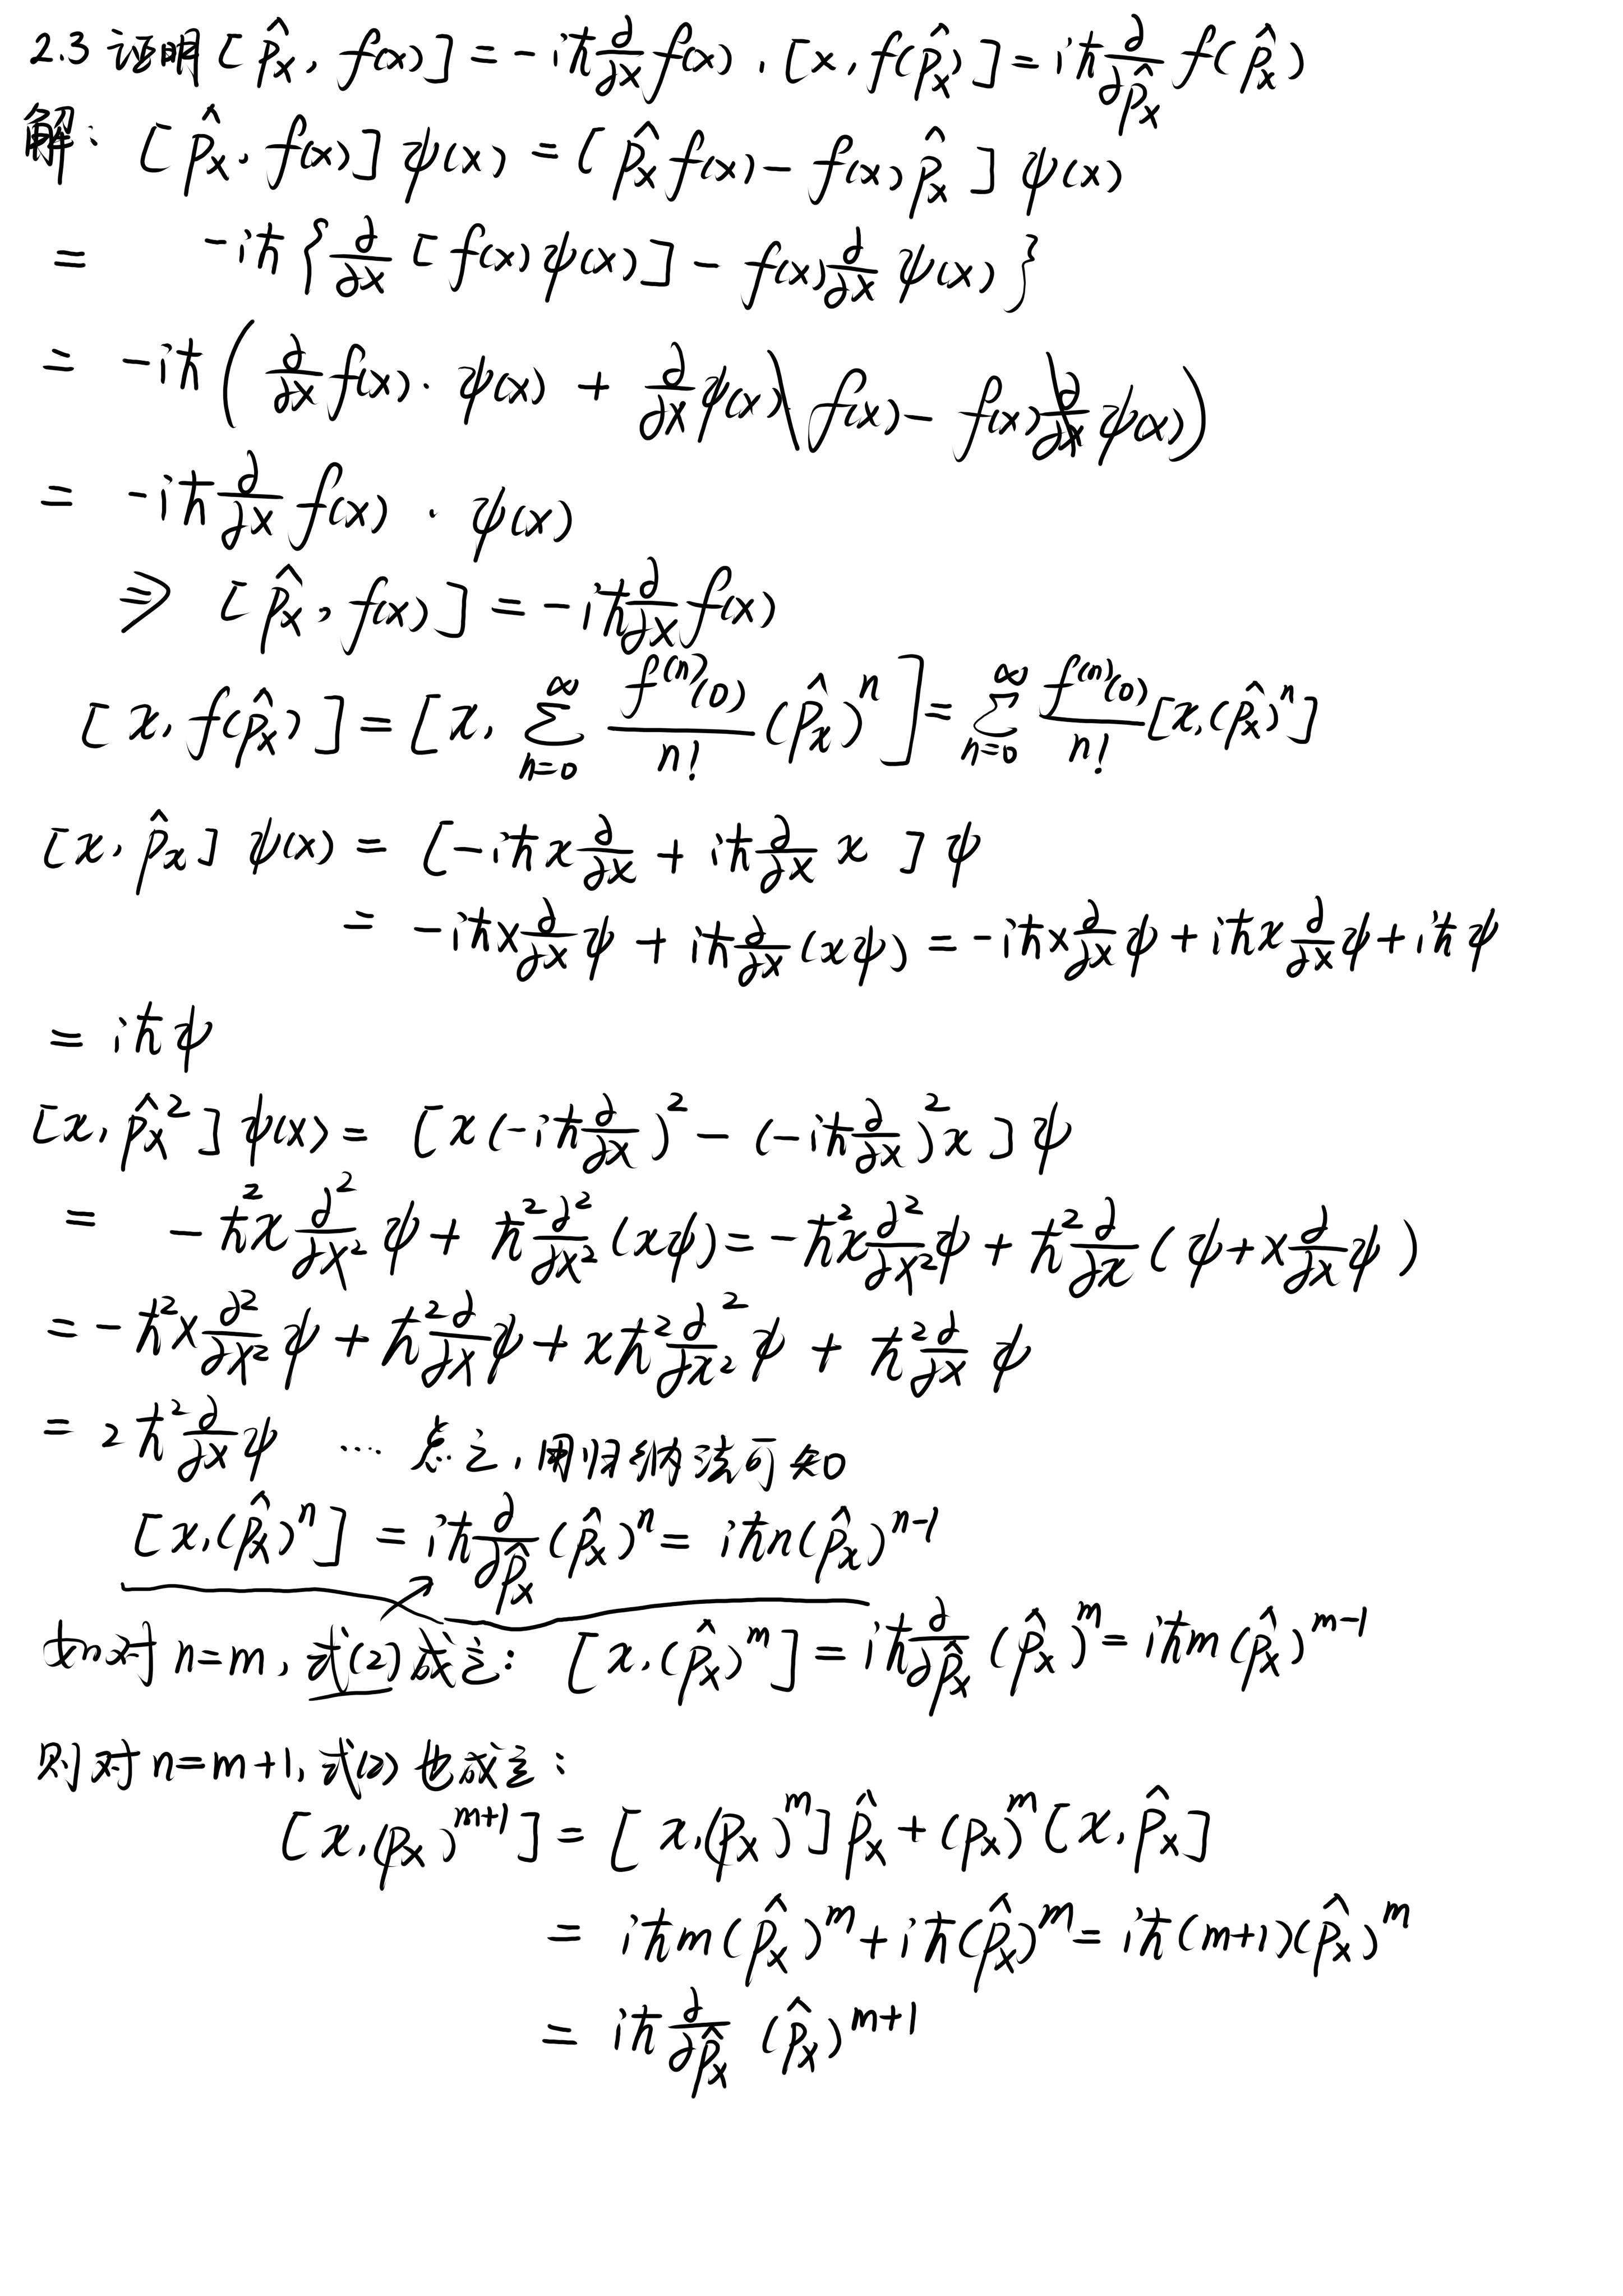 2.3 证明 [p̂ₓ, f(x)] = -iħ ∂/∂x f(x) , [x, f(p̂ₓ)] = iħ ∂/∂p̂ₓ f(p̂ₓ)
解: [p̂ₓ, f(x)] ψ(x) = [p̂ₓ f(x) - f(x) p̂ₓ] ψ(x)
= -iħ { ∂/∂x [f(x) ψ(x)] - f(x) ∂/∂x ψ(x) }
= -iħ ( ∂/∂x f(x) · ψ(x) + ∂/∂x ψ(x) f(x) - f(x) ∂/∂x ψ(x) )
= -iħ ∂/∂x f(x) · ψ(x)
⇒ [p̂ₓ, f(x)] = -iħ ∂/∂x f(x)
[x, f(p̂ₓ)] = [x, ∑_{n=0}^{∞} f⁽ⁿ⁾(0)/n! (p̂ₓ)ⁿ] = ∑_{n=0}^{∞} f⁽ⁿ⁾(0)/n! [x, (p̂ₓ)ⁿ]
[x, p̂ₓ] ψ(x) = [-iħ x ∂/∂x + iħ ∂/∂x x] ψ
= -iħ x ∂/∂x ψ + iħ ∂/∂x (xψ) = -iħ x ∂/∂x ψ + iħ x ∂/∂x ψ + iħ ψ
= iħ ψ
[x, p̂ₓ²] ψ(x) = [x (-iħ ∂/∂x)² - (-iħ ∂/∂x)² x] ψ
= -ħ² x ∂²/∂x² ψ + ħ² ∂²/∂x² (xψ) = -ħ² x ∂²/∂x² ψ + ħ² ∂/∂x (ψ + x ∂/∂x ψ)
= -ħ² x ∂²/∂x² ψ + ħ² ∂/∂x ψ + xħ² ∂²/∂x² ψ + ħ² ∂/∂x ψ
= 2ħ² ∂/∂x ψ ···· 总之, 用归纳法可知
[x, (p̂ₓ)ⁿ] = iħ ∂/∂p̂ₓ (p̂ₓ)ⁿ = iħn(p̂ₓ)ⁿ⁻¹
如对 n=m, 式(2)成立: [x, (p̂ₓ)ᵐ] = iħ ∂/∂p̂ₓ (p̂ₓ)ᵐ = iħm (p̂ₓ)ᵐ⁻¹
则对 n=m+1, 式(2) 也成立:
[x, (pₓ)ᵐ⁺¹] = [x, (pₓ)ᵐ] p̂ₓ + (pₓ)ᵐ [x, p̂ₓ]
= iħm(p̂ₓ)ᵐ + iħ(p̂ₓ)ᵐ = iħ(m+1)(p̂ₓ)ᵐ
= iħ ∂/∂p̂ₓ (p̂ₓ)ᵐ⁺¹